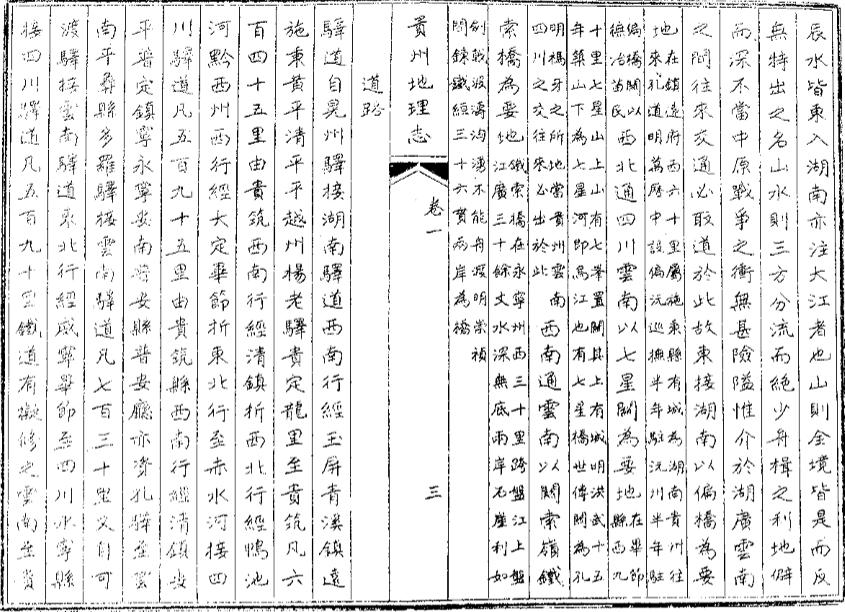 辰水皆東入湖南亦注大江者也山則全境皆是而反
無特出之名山水則三方分流而絕少舟楫之利地僻
而深不當中原戰爭之衝無甚險隘惟介於湖廣雲南
之間往來交通必取道於此故東接湖南以偏橋為要
地在鎮遠府西六十里屬施秉縣有城為湖南貴州往
來孔道明萬歷中設偏沅巡撫半年駐沅州半年駐
偏橋關以
撫冶苗民西北通四川雲南以七星關為要地在畢節
縣西九
十里七星山上山有七峯置關其上有城明洪武十五
年築山下為七星河即烏江也有七星橋世傳關為孔
明禡牙之所地當貴州雲南
四川之交往來必出於此西南通雲南以關索嶺鐵
索橋為要地鐵索橋在永寧州西三十里跨盤江上盤
江廣三十餘丈水深無底兩岸石崖利如
劍戟波濤洶湧不能舟渡明崇禎
間鍊鐵絙三十六貫兩岸為橋
貴州地理志
卷一
三
道路
驛道自晃州驛接湖南驛道西南行經玉屏青溪鎮遠
施秉黃平清平平越州楊老驛貴定龍里至貴筑凡六
百四十五里由貴筑西南行經清鎮折西北行經鴨池
河黔西州西行經大定畢節折東北行至赤水河接四
川驛道凡五百九十五里由貴筑縣西南行經清鎮安
平普定鎮寧永寧安南普安縣普安廳亦資孔驛至雲
南平彝縣多羅驛接雲南驛道凡七百三十里又自可
渡驛接雲南驛道東北行經威寧畢節至四川永寧縣
接四川驛道凡五百九十里鐵道有擬修之雲南至貴